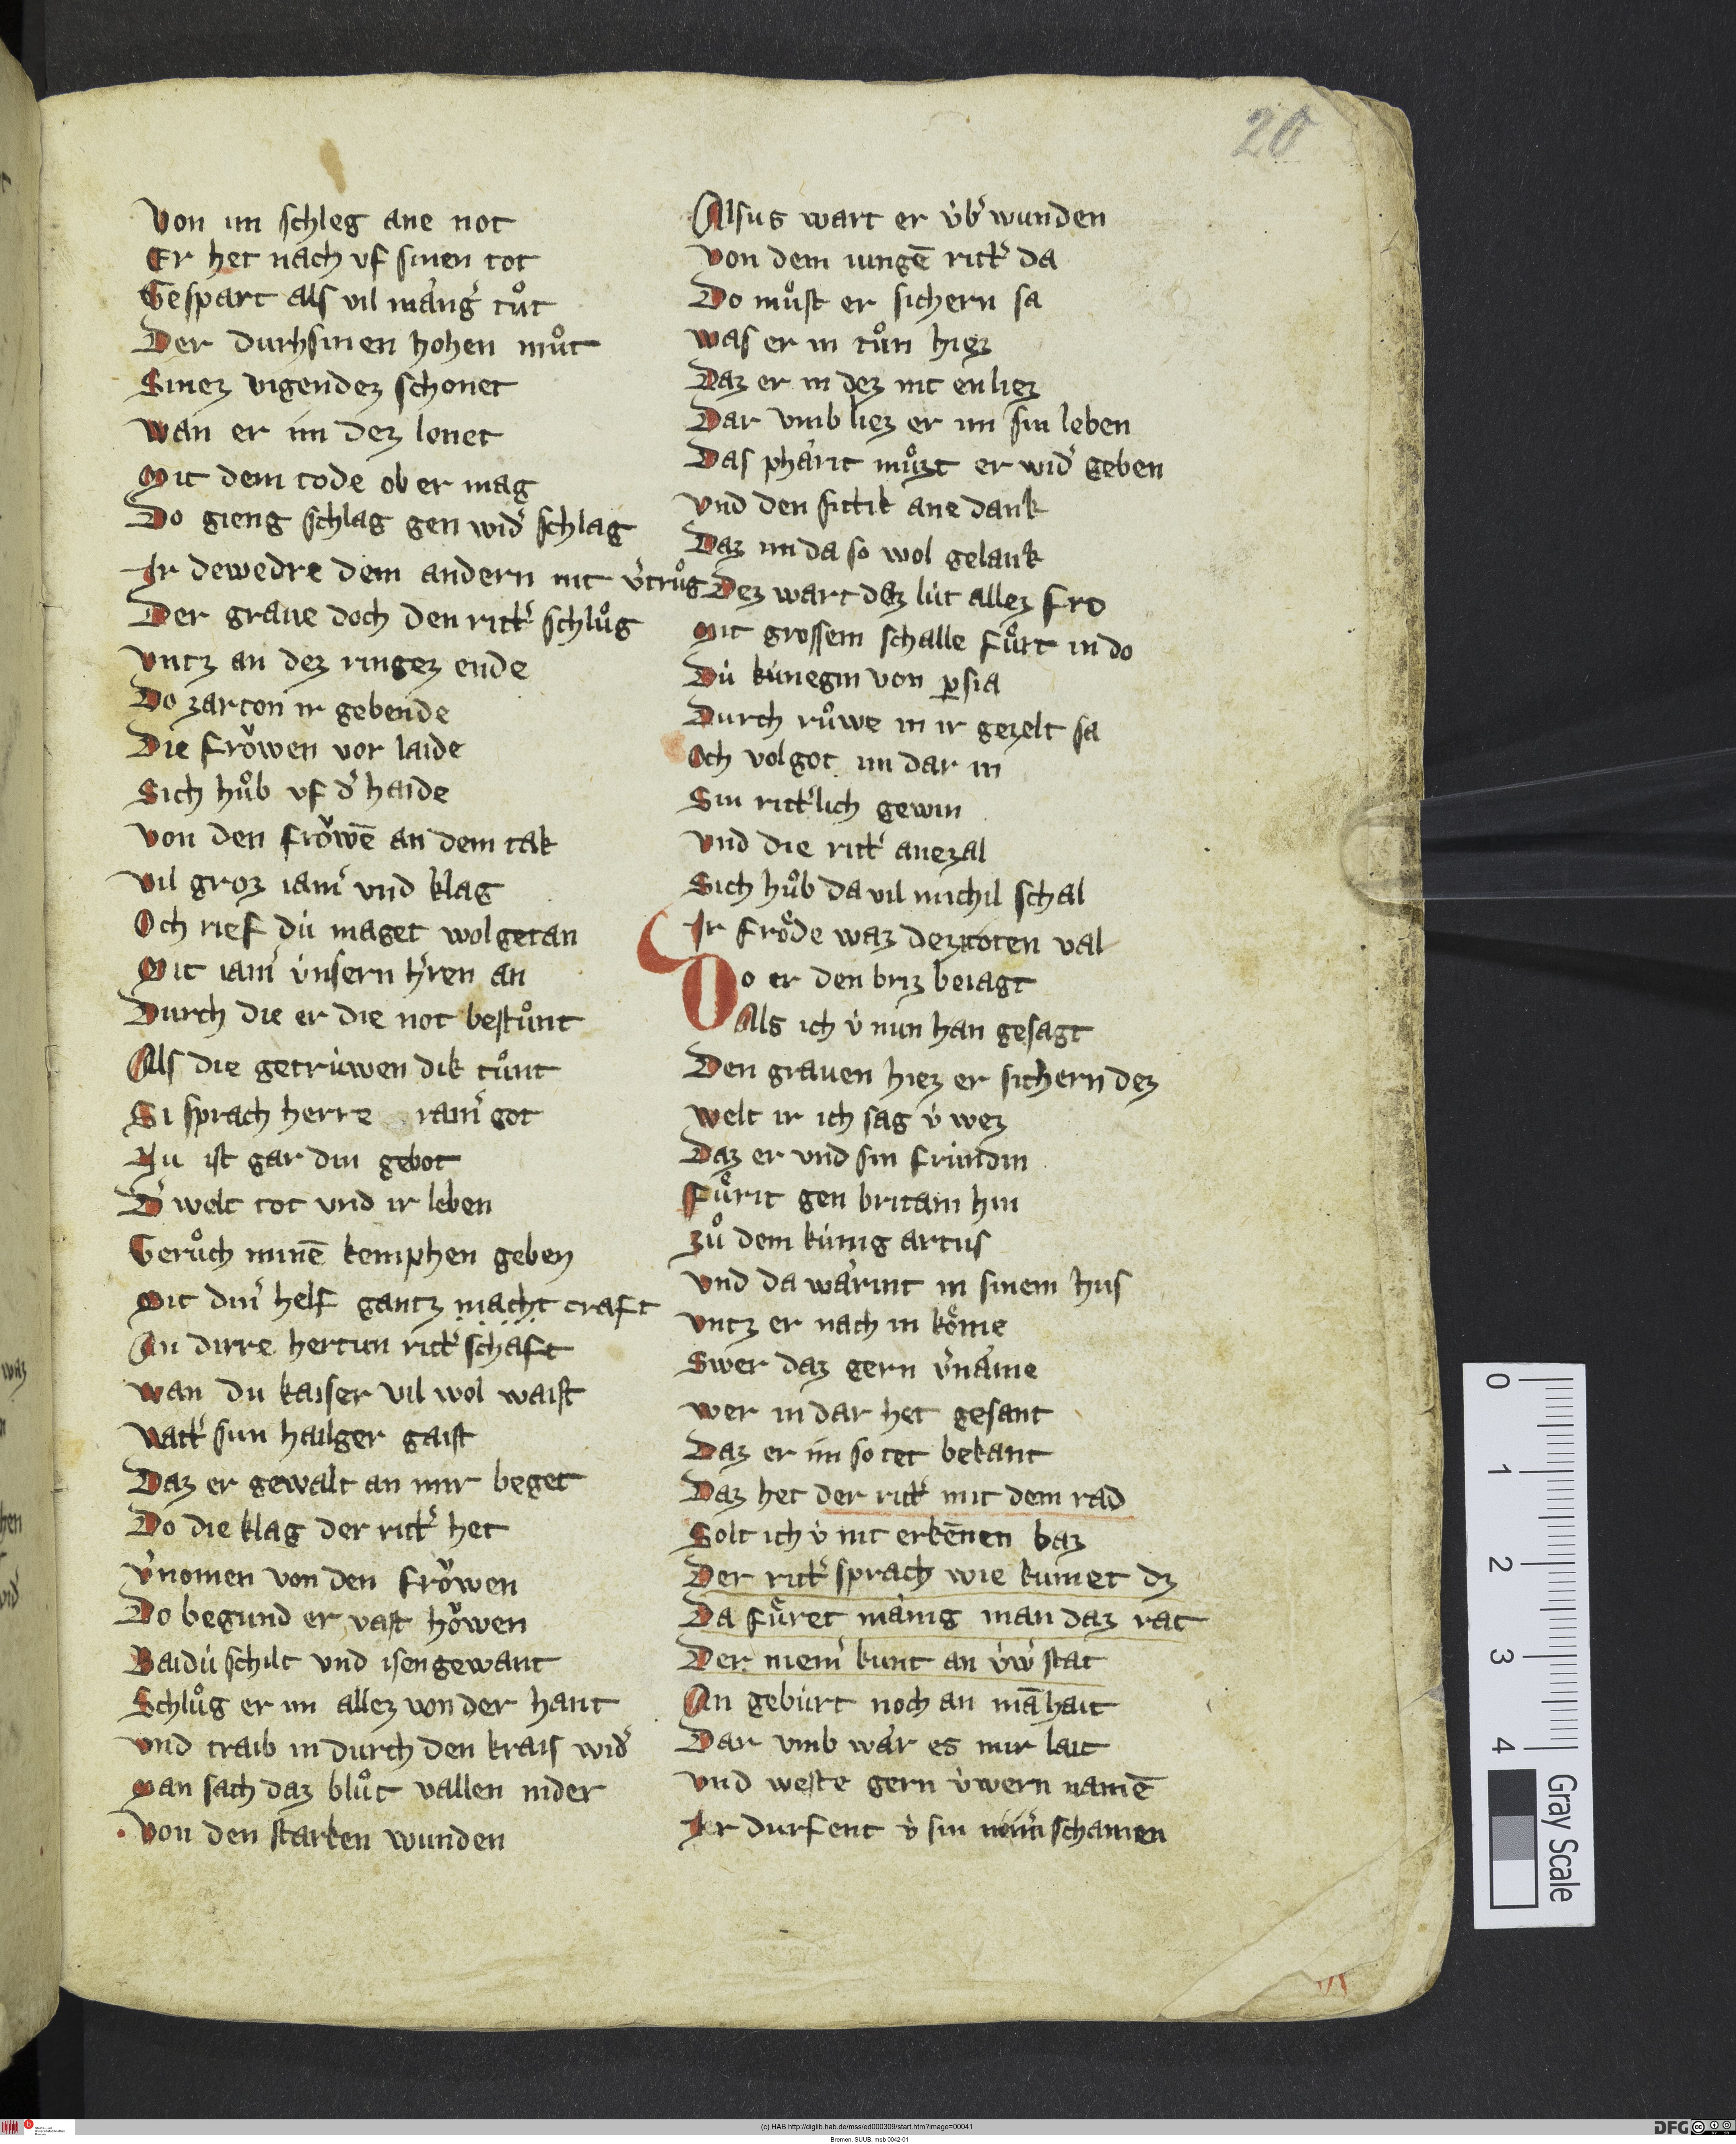 20
Von im schleg ane not
Er het nach vf sinen tot
Gespart als vil mang͛ tuͦt
Der durh sinen hohen muͦt
Sinez vigendez schonet
Wan er im dez lonet
Mit dem tode ob er mag
Do gieng schlag gen wid͛ schlag
Ir dewedre dem andern nit v͛truͦg
Der graue doch den ritt͛ schluͦg
Vntz an dez ringez ende
Do zarton ir gebende
Die froͮwen vor laide
Sich huͦb vf d͛ haide
Von den froͮwē an dem tak
Vil groz iam͛ vnd klag
Och rief dú maget wolgetan
Mit iam͛ vnsern h͛ren an
Durch die er die not bestuͦnt
Als die getrúwen dik tuͦnt
Si sprach herre ram͛ got
Nu ist gar din gebot
D͛ welt tot vnd ir leben
Geruͦch minē kemphen geben
Mit din͛ helf gantz macht craft
An dirre hertun ritt͛schaft
Wan du kaiser vil wol waist
Vatt͛ sun hailger gaist
Daz er gewalt an mir beget
Do die klag der ritt͛ het
V͛nomen von den froͮwen
Do begund er vast hoͮwen
Baidú schilt vnd isengewant
Schluͦg er im allez von der hant
Vnd traib in durch den krais wid͛
Man sach daz bluͦt vallen nider
Von den starken wunden
Alsus wart er v́b͛wunden
Von dem iungē ritt͛ da
Do muͦst er sichern sa
Was er in tuͦn hiez
Daz er in dez nit enliez
Dar vmb liez er im sin leben
Das phärit muͦzt er wid͛ geben
Vnd den sittik ane dank
Daz im da so wol gelank
Dez wart daz lút allez fro
Mit grossem schalle fuͦrt in do
Dú kúnegin von p̱sia
Durch ruͦwe in ir gezelt sa
Och volgot im dar in
Sin ritt͛lich gewin
Vnd die ritt͛ anezal
Sich huͦb da vil michil schal
Ir froͤde waz dez toten val
Do er den briz beiagt
Als ich v́ nun han gesagt
Den grauen hiez er sichern dez
Welt ir ich sag v́ wez
Daz er vnd sin frúndin
Fuͤrit gen britain hin
Zuͦ dem kúnig artus
Vnd da wärint in sinem hus
Vntz er nach in koͤme
Swer daz gern v͛näme
Wer in dar het gesant
Daz er im so tet bekant
Daz het der ritt͛ mit dem rad
Solt ich v́ nit erkēnen baz
Der ritt͛ sprach wie kumet dz
Da fuͤret mänig man daz rat
Der niem͛ kunt an v́w͛ stat
An gebúrt noch an māhait
Dar vmb wär es mir lait
Vnd weste gern v́wern namē
Ir durfent v́ sin schamen
0
1
2
3
4
Gray Scale
(c) HAB http://diglib.hab.de/mss/ed000309/start.htm?image=00041
Bremen, SUUB, msb 0042-01
DFG